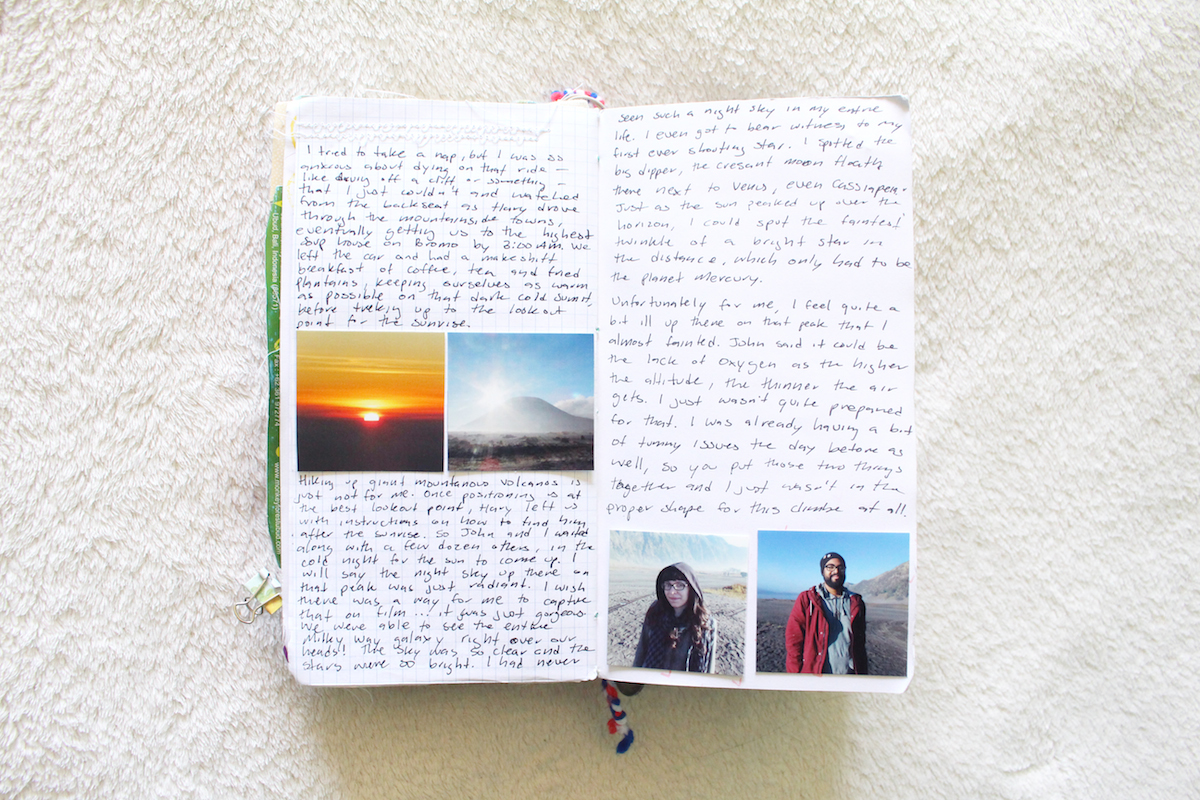 I tried to take a nap, but I was so
anxious about dying on that ride –
like driving off a cliff or something –
that I just couldn't and watched
from the backseat as Hary drove
through the mountainside towns,
eventually getting us to the highest
soup house on Bromo by 3:00 AM. We
left the car and had a makeshift
breakfast of coffee, tea and fried
plantains, keeping ourselves as warm
as possible on that dark cold summit
before treking up to the lookout
point for the sunrise.
Hiking up giant mountanous volcanos is
just not for me. Once positioning us at
the best lookout point, Hary left us
with instructions on how to find him
after the sunrise. So John and I waited
along with a few dozen others, in the
cold night for the sun to come up. I
will say the night sky up there on
that peak was just radiant. I wish
there was a way for me to captive
that on film... it was just gorgeous.
We were able to see the entire
Milky Way galaxy right over our
heads! The sky was so clear and the
stars were so bright. I had never
seen such a night sky in my entire
life. I even got to bear witness to my
first ever shooting star. I spotted the
big dipper, the cresant moon
there next to Venus, even
Just as the sun peaked up over the
horizon, I could spot the faintest
twinkle of a bright star in
the distance, which only had to be
the planet Mercury.
Unfortunately for me, I feel quite a
bit ill up there on that peak that I
almost fainted. John said it could be
the lack of oxygen as the higher
the altitude, the thinner the air
gets. I just wasn't quite prepared
for that. I was already having a bit
of tummy issues the day before as
well, so you put those two things
together and I just wasn't in the
proper shape for this climbe at all.
Ubud, Bali, Indonesia
www.monkeyforestubud.com